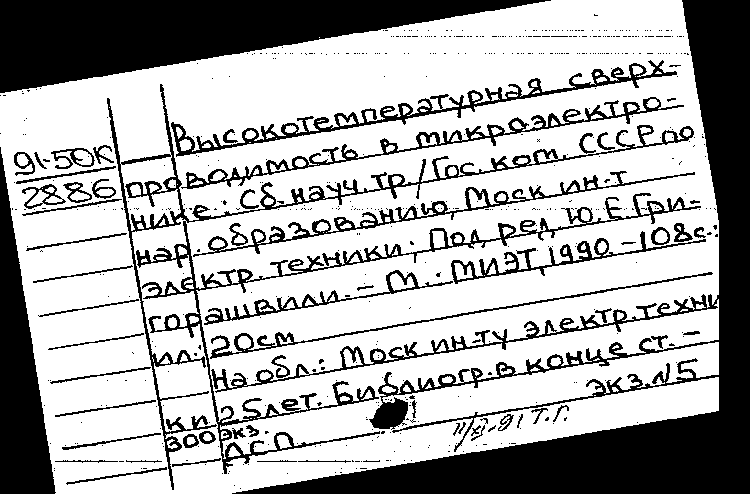 Высокотемпературная сверх-
91-50К
проводимость в микроэлектро-
2886
нике: Сб. науч. тр/Гос. ком. СССР по
нар. образованию, Моск ин-т
электр. техники; Под ред Ю.Е.Гри-
горашвили. - М.: МИЭТ, 1990. - 108с.:
ил.; 20см
На обл.: Моск ин-ту электр. техни
25лет. Библиогр. в конце ст. -
КИ
300 экз. экз. №5
ДСП. 11/XI-91 Т.Г.